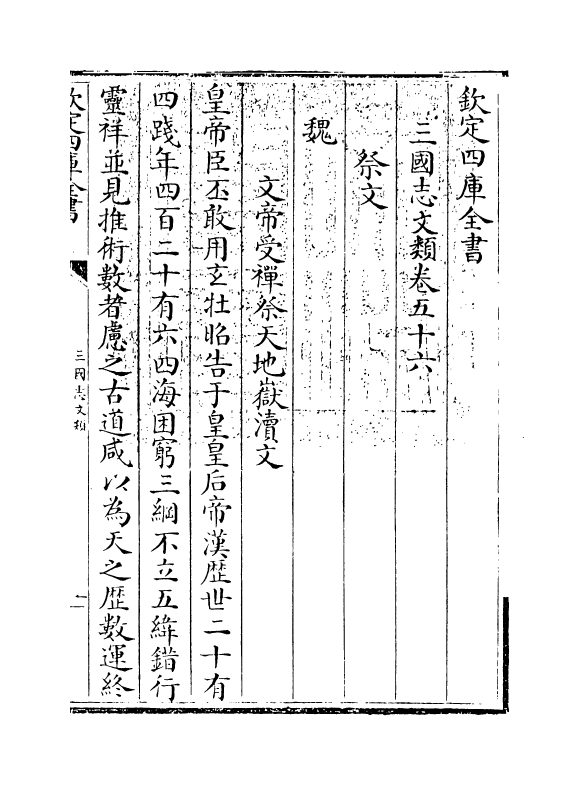 欽定四庫全書
三國志文類卷五十六
祭文
魏
文帝受禪祭天地嶽瀆文
皇帝臣丕敢用玄牡昭告于皇皇后帝漢歴世二十有
四踐年四百二十有六四海困窮三綱不立五緯錯行
靈祥並見推術數者慮之古道咸以為天之歴數運終
欽定四庫全書
三國志文類